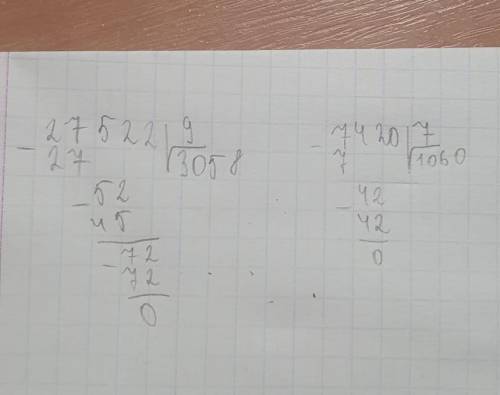 - 27522 | 9
27 | 3058
- 52
45
- 72
72
0
- 7420 | 7
7 | 1060
- 42
42
0